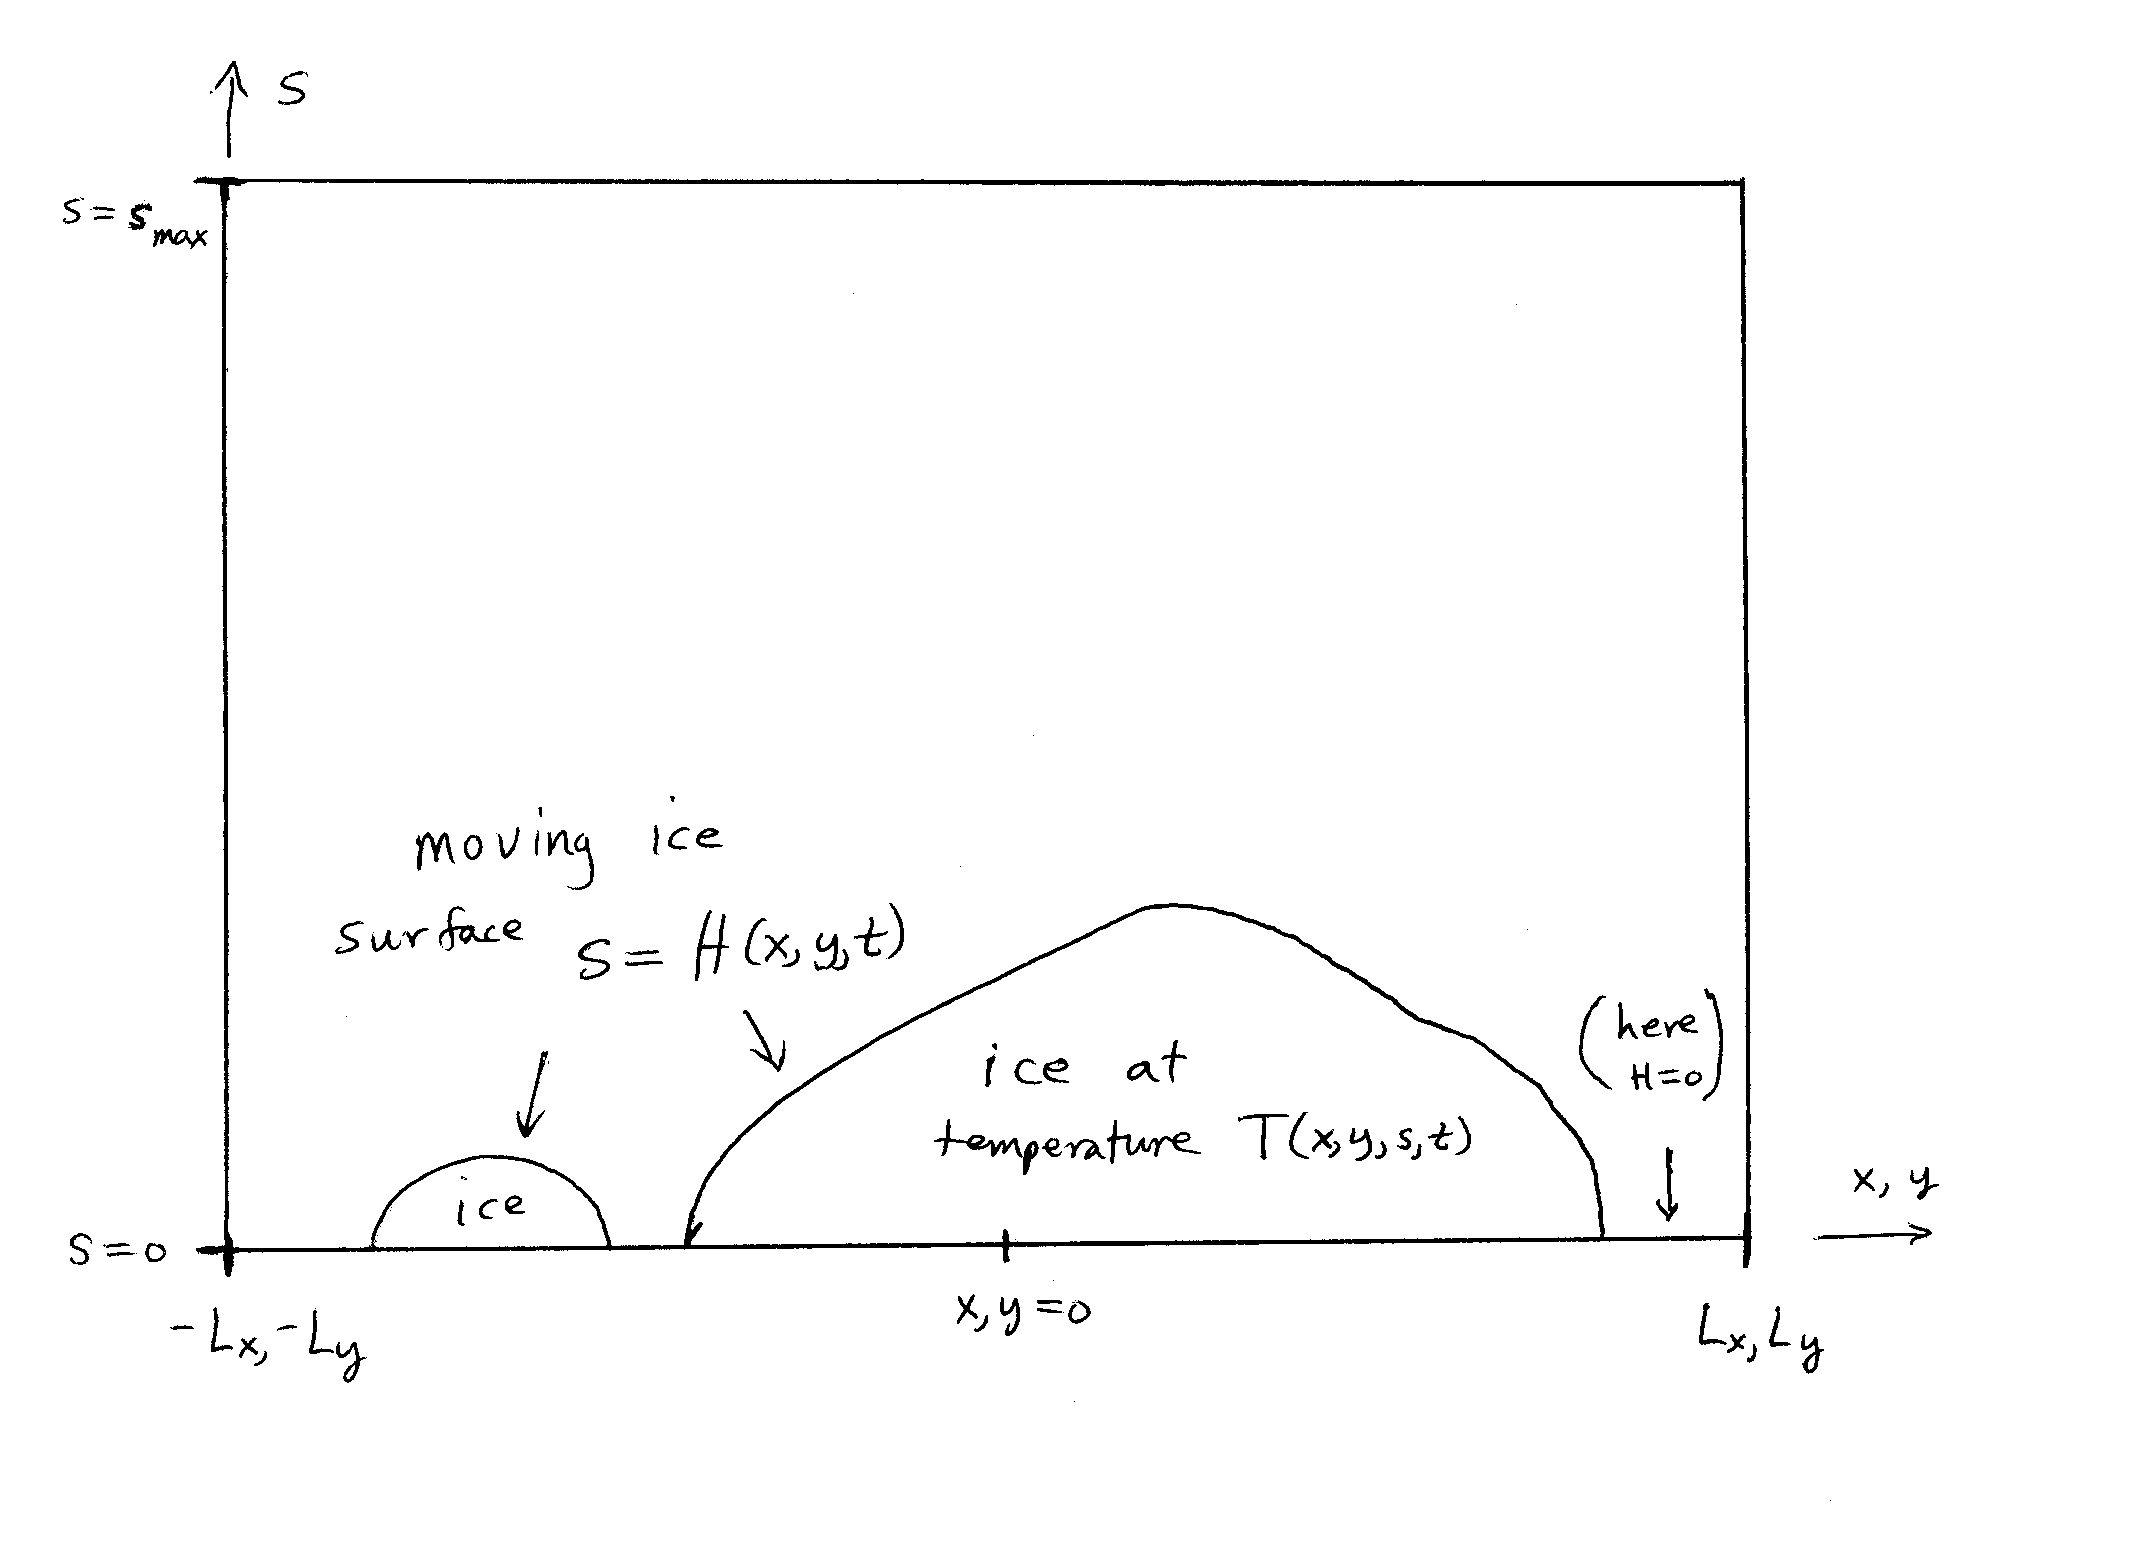 S
S = s_max
moving ice
surface S = H(x,y,t)
(here
H=0)
ice at
temperature T(x,y,s,t)
ice
x, y
S=0
x,y=0
-Lx,-Ly
Lx,Ly